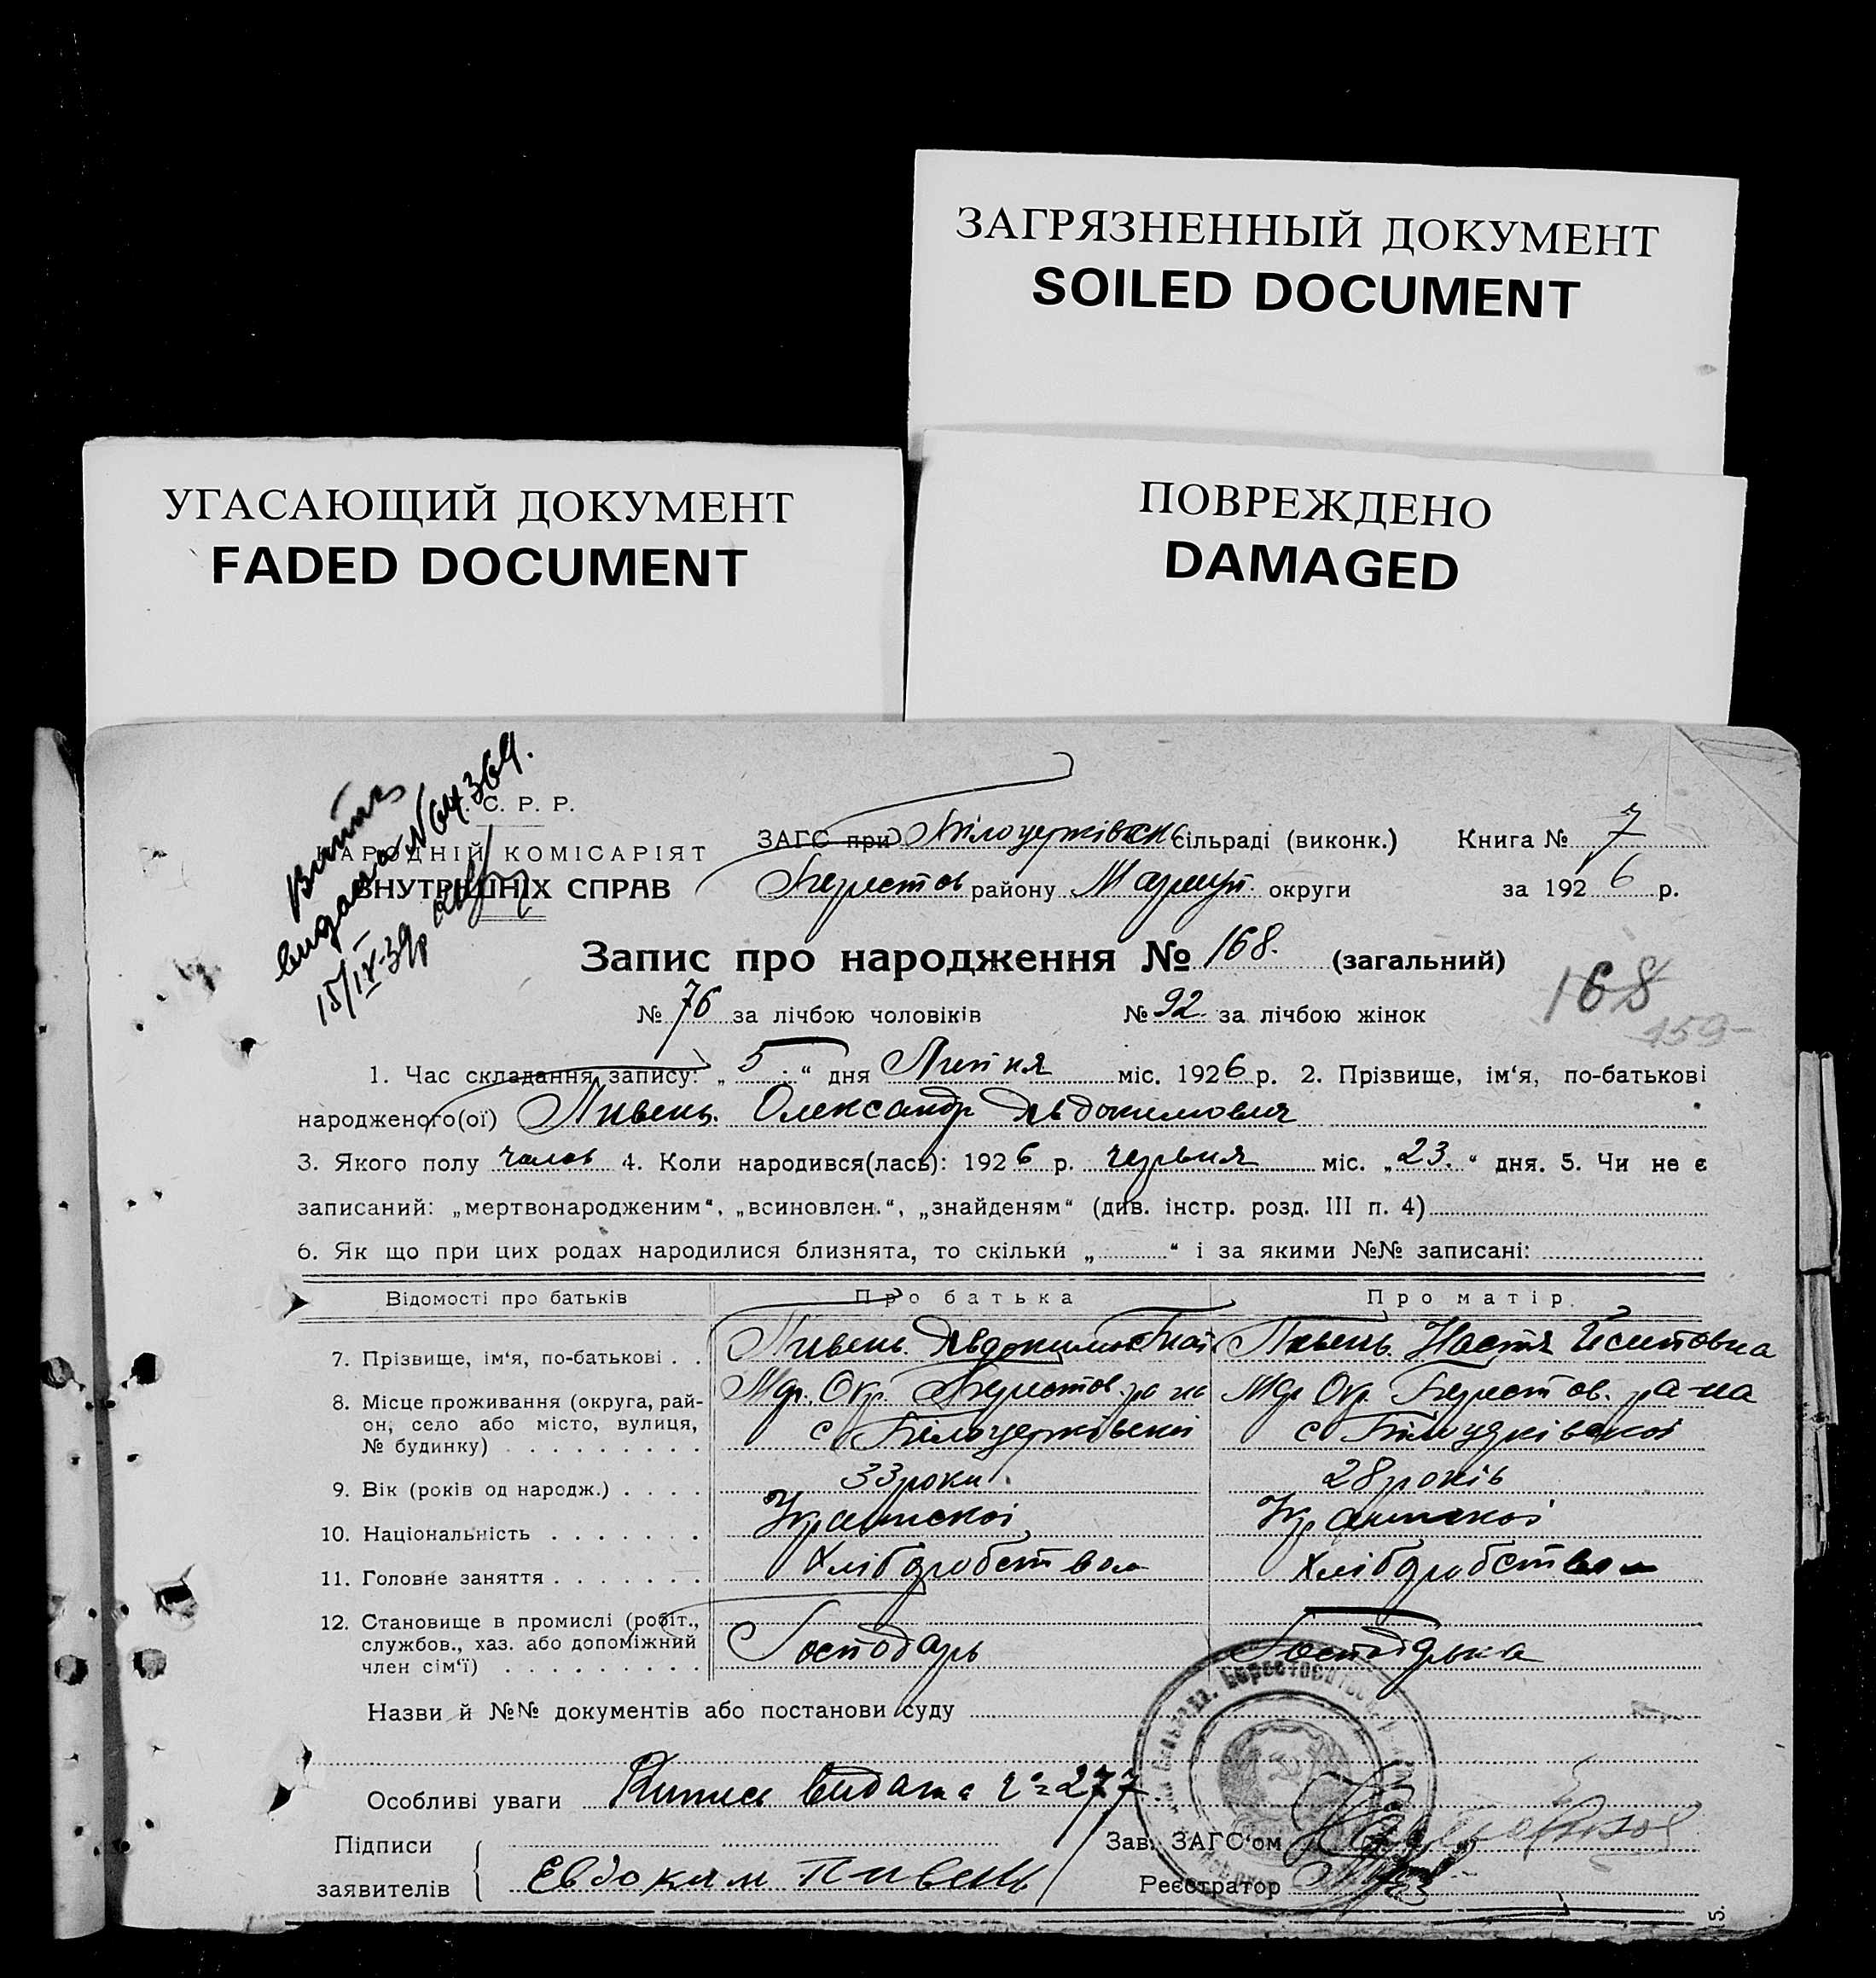 ЗАГРЯЗНЕННЫЙ ДОКУМЕНТ
SOILED DOCUMENT
УГАСАЮЩИЙ ДОКУМЕНТ
FADED DOCUMENT
ПОВРЕЖДЕНО
DAMAGED
видана №64364.
15/IV-39р
С. Р. Р.
НАРОДНІЙ КОМІСАРІЯТ
ВНУТРІШНІХ СПРАВ
ЗАГС при Білоцерківск сільраді (виконк.) Книга № 7
Берестов району Маріуп. округи за 1926 р.
Запис про народження № 168. (загальний)
168
159
№ 76 за лічбою чоловіків № 92 за лічбою жінок
1. Час складання запису: „5“ дня Липня міс. 1926 р. 2. Прізвище, ім‘я, по-батькові
народженого(ої) Пивень Олександр Явдокимович
3. Якого полу чолов 4. Коли народився(лась): 1926 р. червня міс. „23.“ дня. 5. Чи не є
записаний: „мертвонародженим“, „всиновлен.“, „знайденям“ (див. інстр. розд. III п. 4)
6. Як що при цих родах народилися близнята, то скільки „ “ і за якими №№ записані:
Відомості про батьків Про батька Про матір
7. Прізвище, ім‘я, по-батькові . . Пивень Явдоким Пивень Настя
8. Місце проживання (округа, рай- Мар. Окр. Берестов. ра-на Мар Окр Берестов. ра-на
он, село або місто, вулиця, с Білоцерківской с Білоцерківской
№ будинку)
9. Вік (років од народж.) 33 роки. 28 років
10. Національність Украінскоі Украінскоі
11. Головне заняття Хлібороб­ством Хліборобством
12. Становище в промислі (робіт.,
службов., хаз. або допоміжний Господарь Господарька
член сім‘ї)
Назви й №№ документів або постанови суду
Особливі уваги видана №277
Підписи Зав. ЗАГС‘ом
заявителів Евдоким Пивень Реєстратор